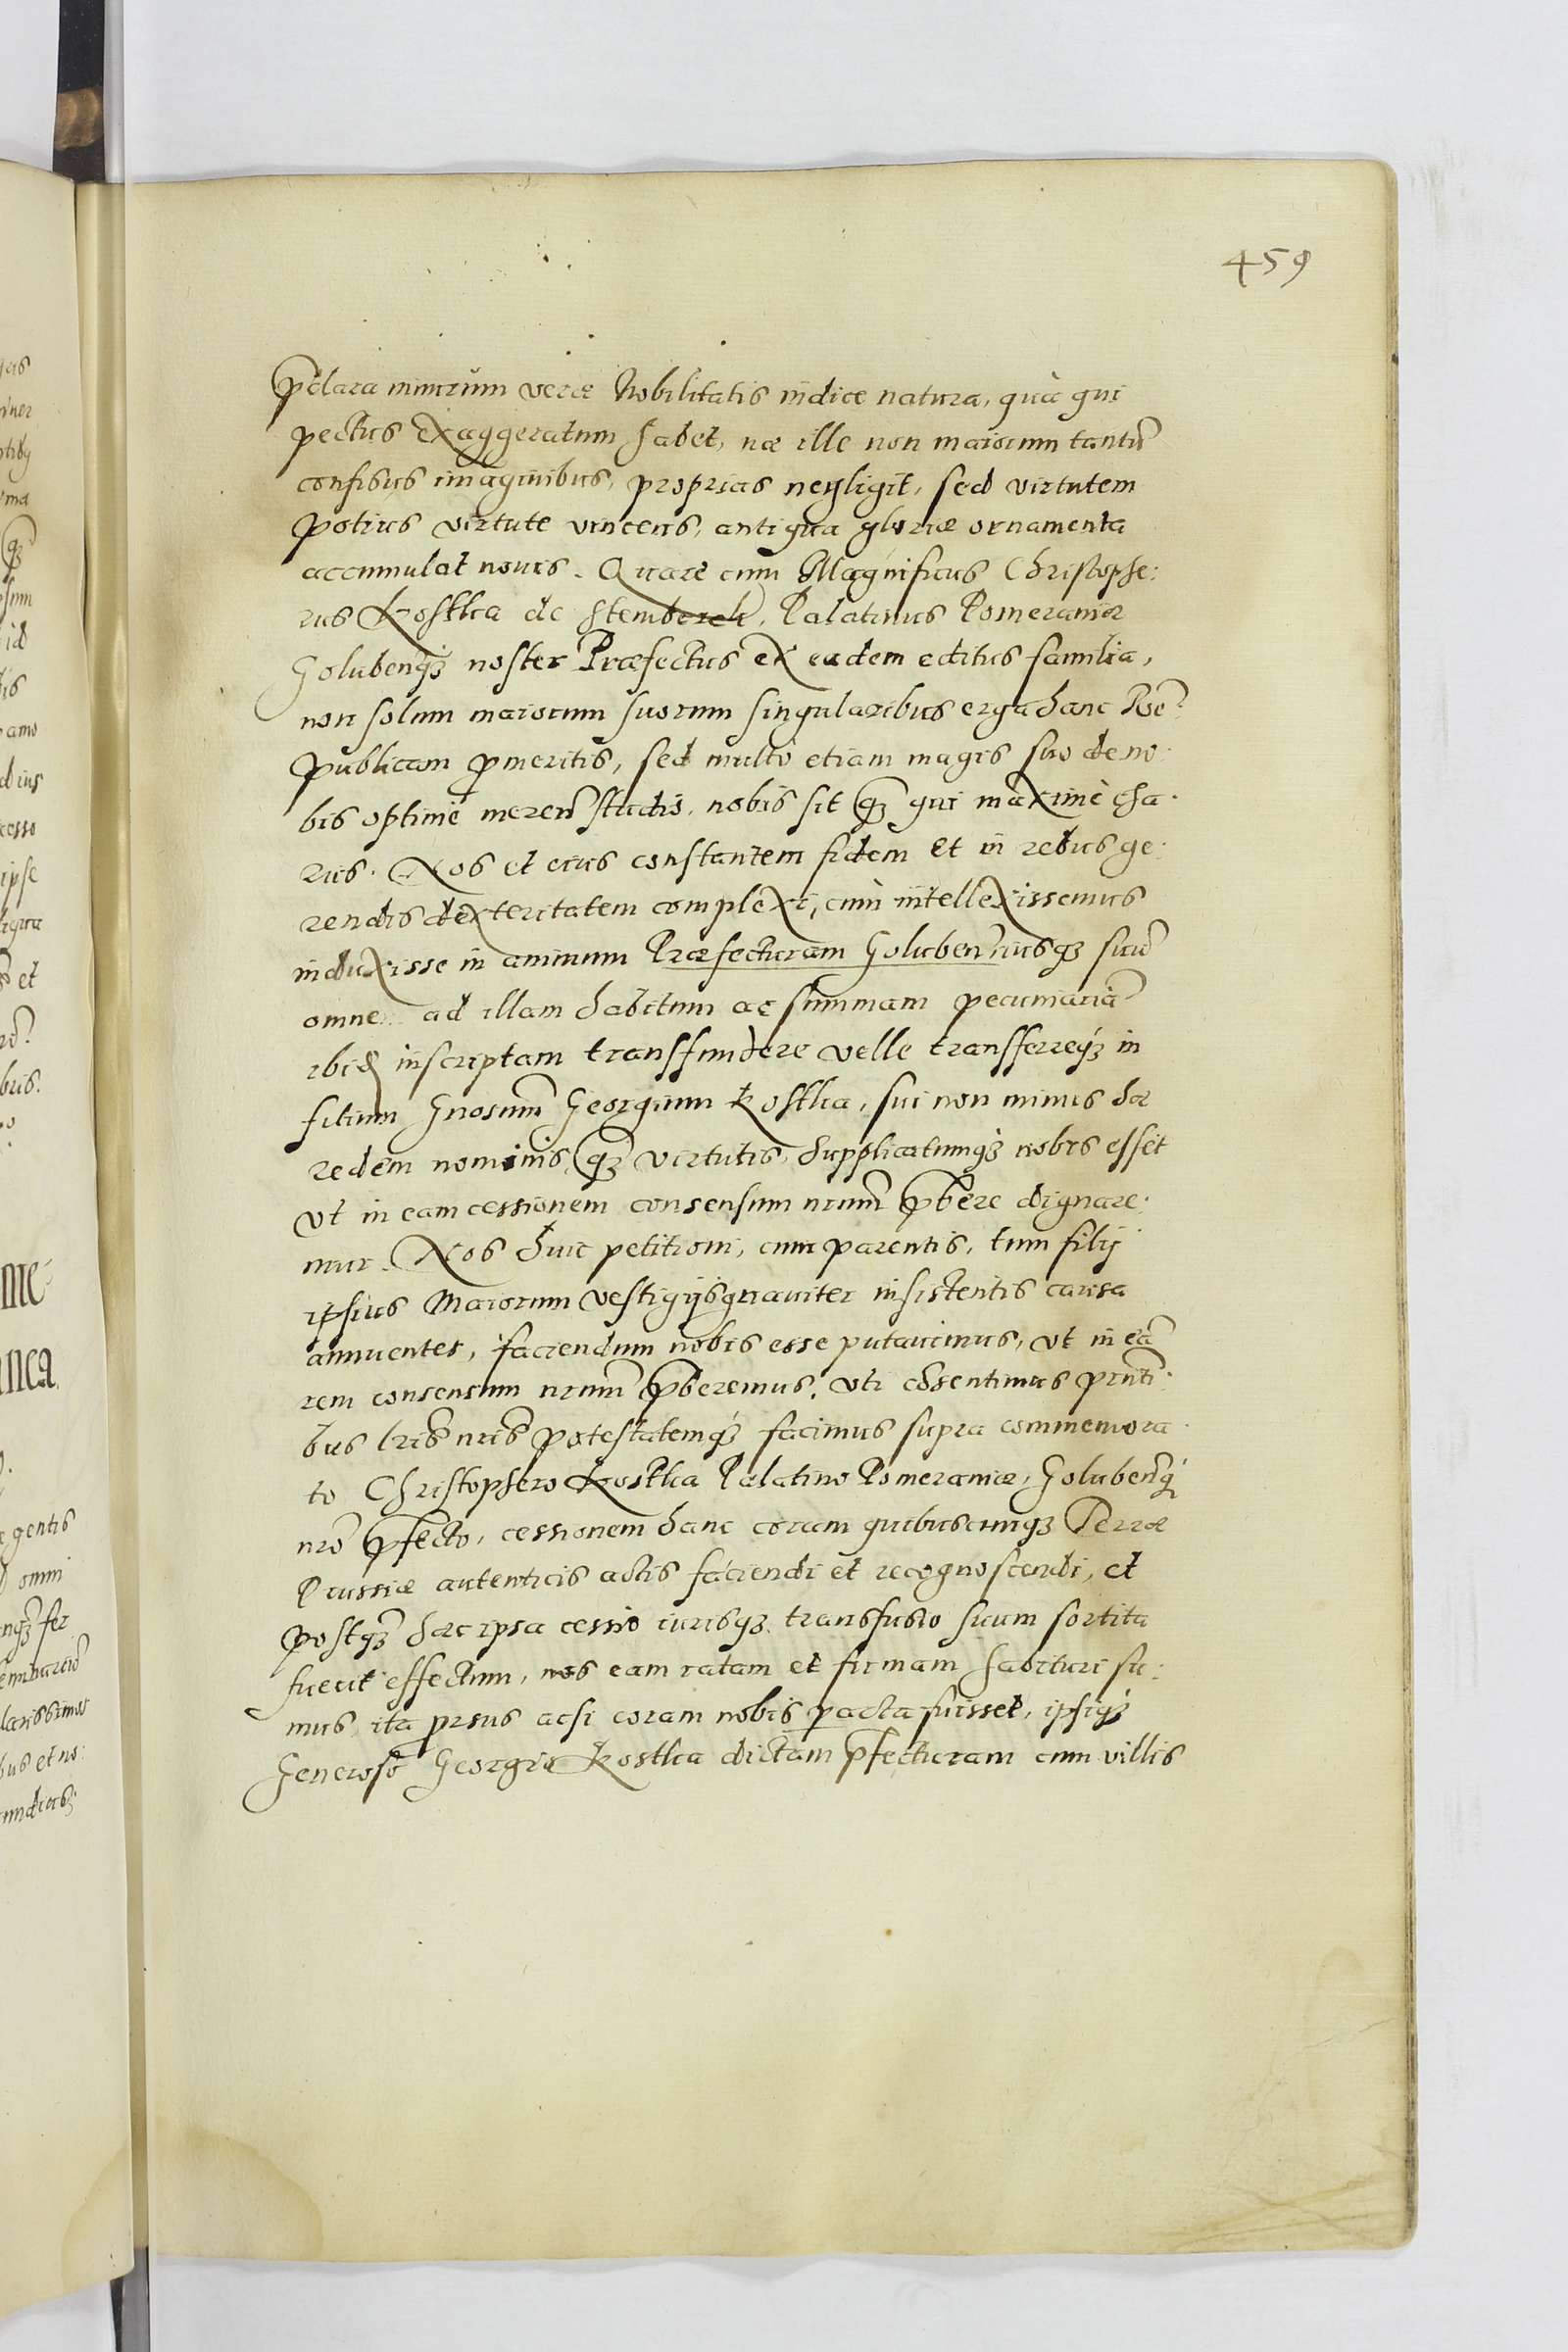 459
p̃clara nimirum veræ Nobilitatis indice natura, quà qui
pectus exaggeratum habet, næ ille non maiorum tantũ
confisus imaginibus, proprias negligit, sed virtutem
potius virtute vincens, antiqua gloriæ ornamenta
accumulat nouis. Quare cum Magnificus Christophe:
rus Kostka de Stemberck, Palatinus Pomeraniæ
Golubenq́ noster Præfectus ex eadem editus familia,
non solum maiorum suorum singularibus erga hanc Rẽ
publicam promeritis, sed multo etiam magis suo de no:
bis optimè merenõ studio, nobis sit q̃ qui maximè cha:
rus. Nos et eius constantem fidem et in rebus ge:
rendis dexteritatem complexi, cum intellexissemus
induxisse in animum Præfecturam Goluben̄ iusq́ suũ
omne ad illam habitum ac summam pecuniariã
ibid inscriptam transfundere velle transferreq́ in
filium Gnosum̃ Georgium Kostka, sui non minus hæ
redem nominis, q̃ virtutis, supplicatumq́ nobis esset
vt in eam cessionem consensum nrum̃ p̃bere dignare:
mur. Nos huic petitioni, cum parentis, tum filij
ipsius Maiorum vestigijs gnauiter insistentis causa
annuentes, faciendum nobis esse putauimus, vt in eã
rem consensum nrum̃ p̃beremus, vti cõsentimus pñti:
bus lris̃ nris̃ potestatemq́ facimus supra commemora:
to Christophero Kostka Palatino Pomeraniæ, Golubenq́
nrõ p̃fecto, cessionem hanc coram quibuscunq́ Terræ
Prussiæ autenticis actis faciendi et recognoscendi, et
postq̃ hæc ipsa cessio iurisq́ transfusio suum sortita
fuerit effectum, nos eam ratam et firmam habituri su:
mus, ita prsus acsi coram nobis pacta fuisset, ipsiq́
Generoso Georgio Kostka dictam p̃fecturam cum villis